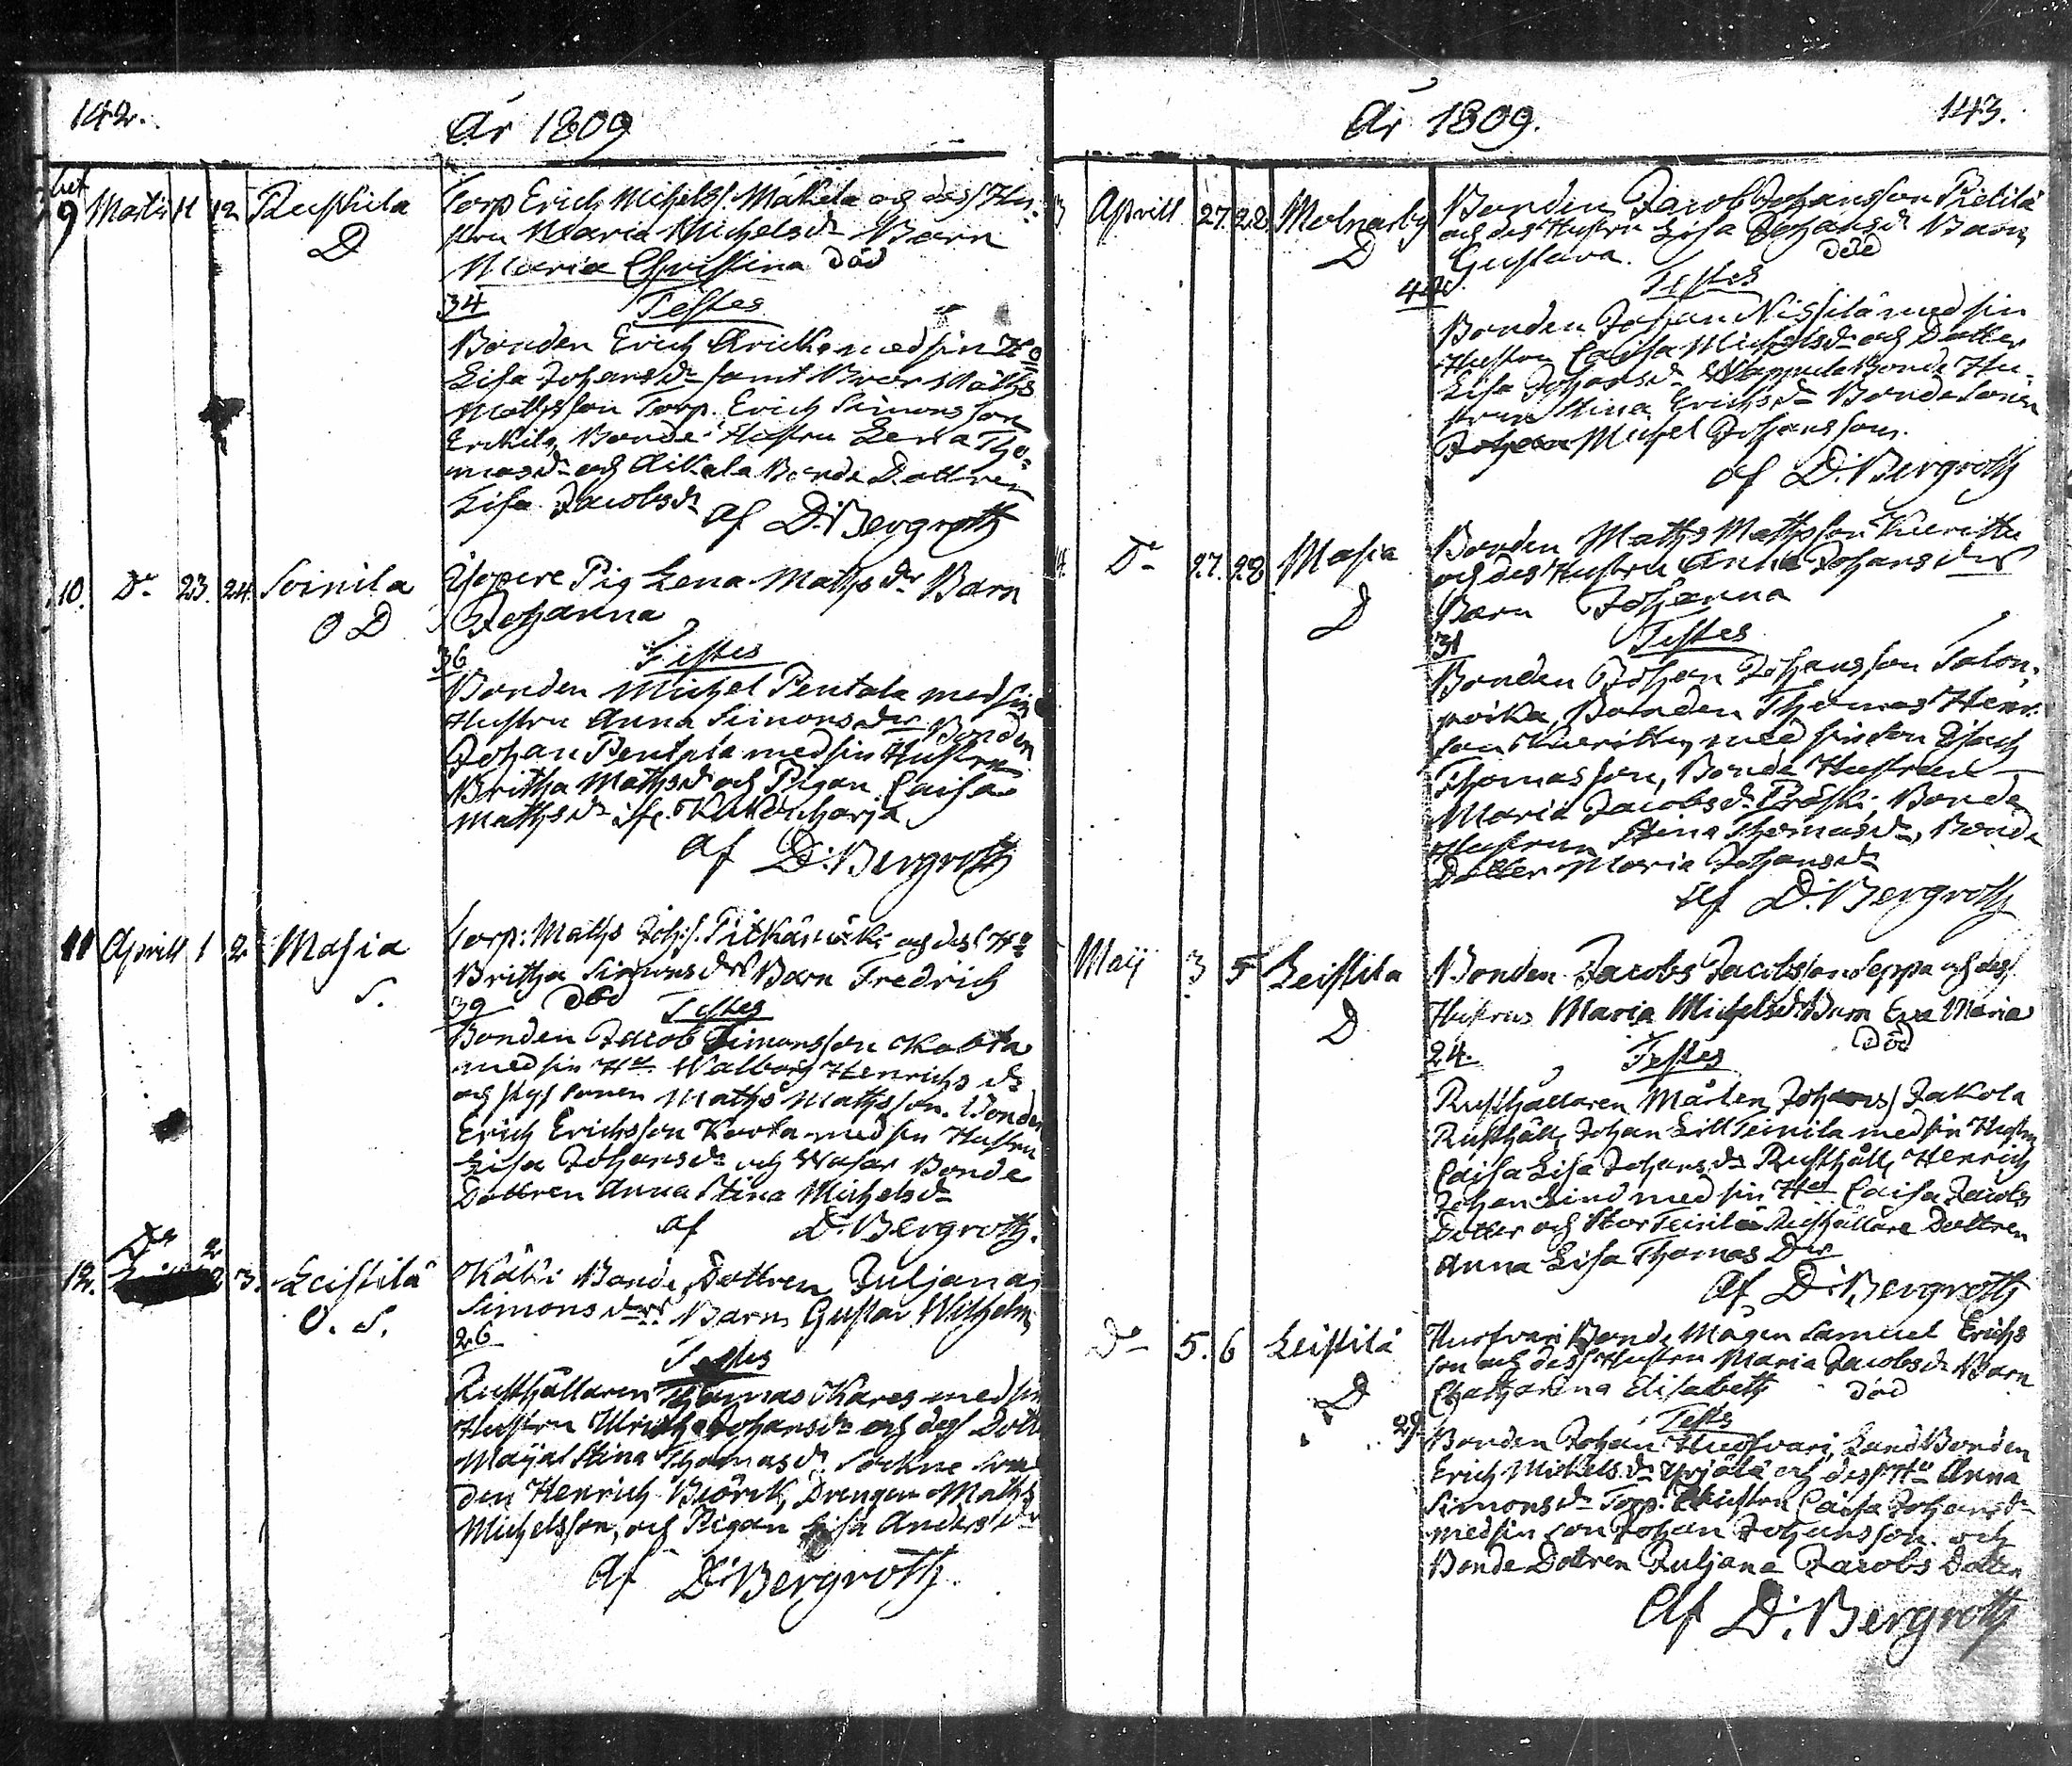 142.
År 1809
9 Martii 11 12 Ruskila Torp Erich Michelss. Mäkelä och dess Hu-
D stru Maria Michelsdr Barn
Maria Christina död
34 Testes
Bonden Erich med sin Ho
Lisa Johansdr samt Maths
Mathsson Torp. Erich Simonsson
Erkila, Bonde Hustru Lena Tho-
masdr och Aikala Bonde Dottren
Lisa Jacobsdr af D: Bergroth
10. Do 23. 24. Soinila Pig Lena Mathsdr Barn
O D Johanna
36 Testes
Bonden Michel Pentala med sin
Hustru Anna Simonsdr Bonden
Johan Pentala med sin Hustru
Britha Mathsdr och Pigan Caisa
Mathsdr ifr. Kukonharja
af D: Bergroth
11 Aprill 1 2 Masia Torp: Maths Joh:s. Pitkämäki och dess Ho
S. Britha Simonsdrs Barn Fredrich
39 död Testes
Bonden Jacob Simonsson Kabta
med sin Hu Walborg Henrichsdr
och sonen Maths Mathsson. Bonden
Erich Erichsson Korta med sin Hustru
Lisa Johansdr och Wasar Bonde
Dottren Anna Stina Michelsdr
af D: Bergroth.
12. Do 2 3. Leistilä Käki Bonde Dottren Juljana
O. S. Simonsdrs Barn Gustav Wilhelm
26
Testes
Rusthållaren Thomas Kares med sin
Hustru Johansdr och dess Dotter
Maija Stina Thomasdr
den Henrich Björk, Drengen Maths
Michelsson, och Pigan Lisa Andersdr
af D: Bergroth.
År 1809.
143.
Aprill 27. 28. Molnarby Bonden Jacob Johansson Pietilä
D och dess Hustru Lisa Johansdr Barn
Gustava. död
42 Testes
Bonden Johan Nissilä med sin
Hustru Caisa Michelsdr och Dotter
Lisa Johansdr Wappula Bonde Hu-
strun Stina Erichsdr Bonde Sonen
Michel Johansson.
af D: Bergroth
Do 27. 28 Masia Bonden Maths Mathsson Kuerittu
D och dess Hustru Anna Johansdrs
Barn Johanna
31 Testes
Bonden Johan Johansson Salon-
poika, Bonden Thomas Henr.
son Kuerittu, med sin son Isach
Thomasson, Bonde Hustrun
Maria Jacobsdr Präski Bonde
Hustrun Stina Thomasdr, Bonde
Dotter Maria Johansdr
af D: Bergroth
Maij 3 5 Leistila Bonden Jacobs Jacobsson Seppä och dess
D Hustrus Maria Michelsd: Barn Eva Maria
24. Testes död
Rusthållaren Mårten Johanss Jakola
Rusthåll. Johan Lill Teinila med sin Hustru
Caisa Lisa Johansdr Rusthåll. Henrich
Johan Lind med sin Hu Caisa Jacobs
Dotter och Stor Teinilä Rusthållare Dottren
Anna Lisa Thomas Dr
af D: Bergroth
Do 5. 6 Leistilä Hurfvari Bonde Mågen Samuel Erichs
D son och dess Hustru Maria Jacobsdr Barn
Chatharina Elisabeth död
29. Testes
Bonden Johan Hurfvari, Land Bonden
Erich Michelsd Yrjölä och dess Hu Anna
Simonsdr Torp: Hustru Caisa Johansdr
med sin son Johan Johansson och
Bonde Dottren Juljana Jacobs Dotter
af D: Bergroth